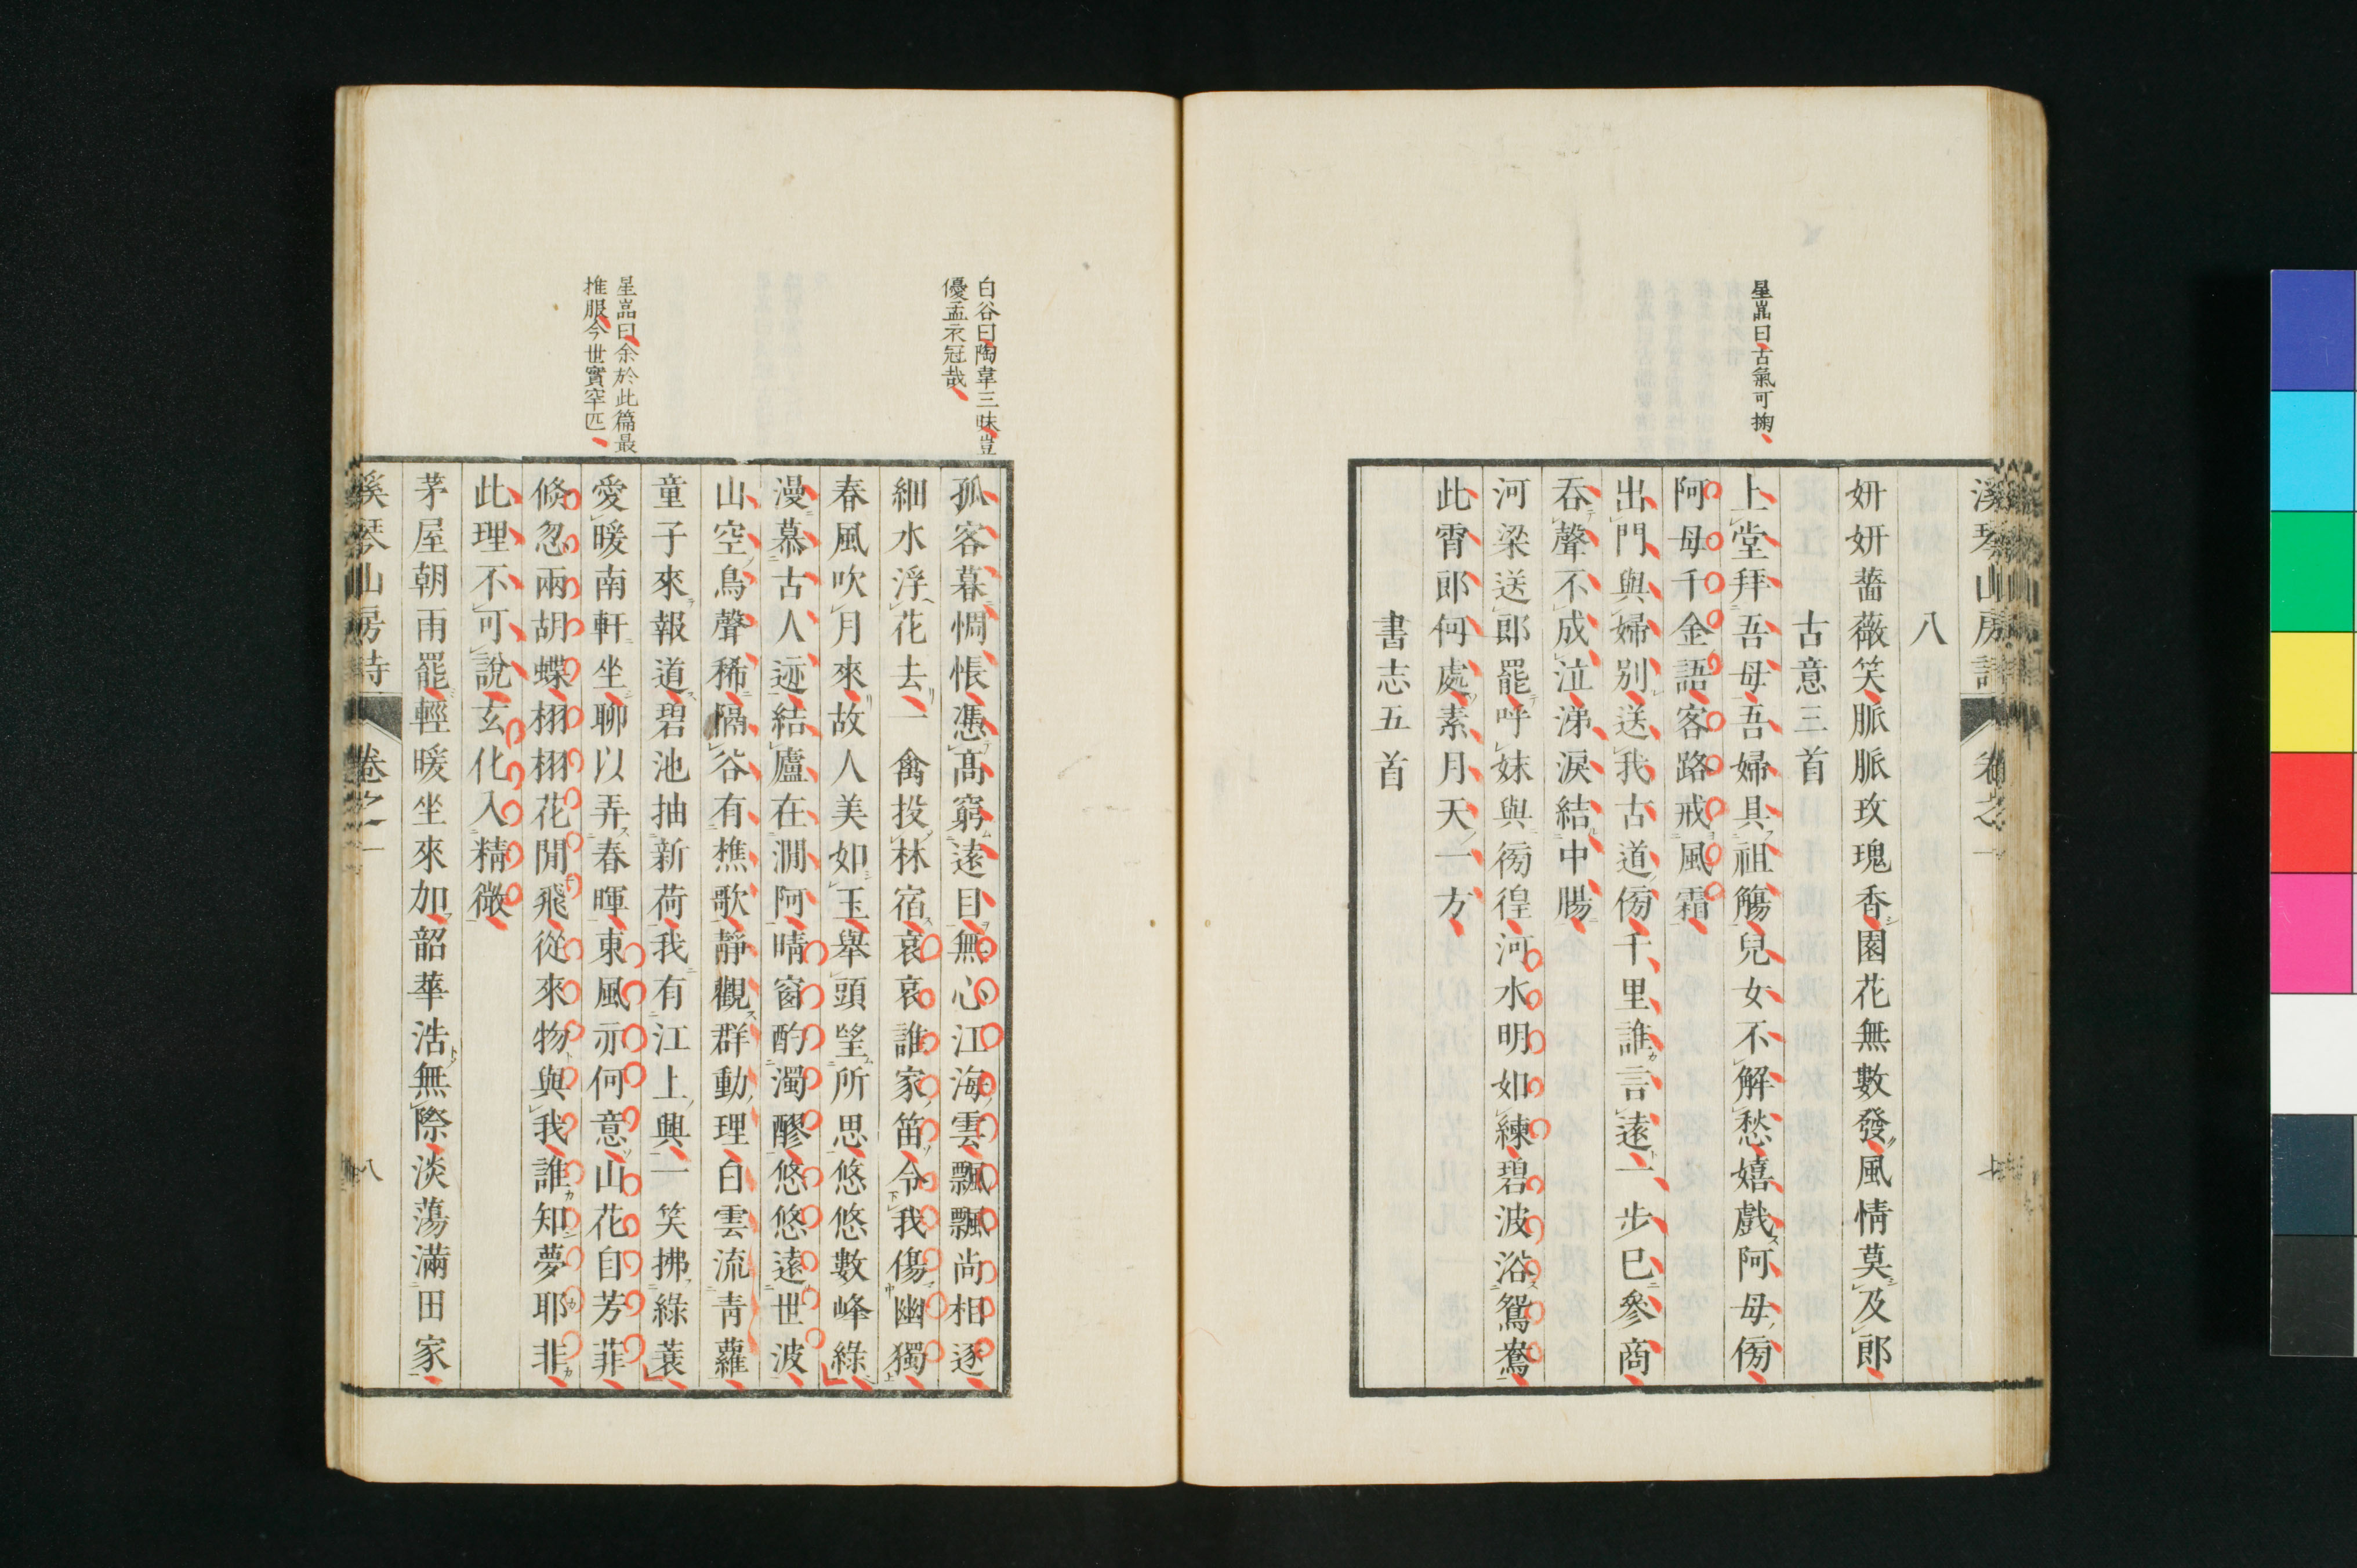 溪琴山房詩 卷之一 七
八
妍妍薔薇笑脈脈玫瑰香園花無數發風情莫及郎
古意三首
星嵓曰古氣可掬
上堂拜吾母吾婦具祖觴兒女不解愁嬉戲阿母傍
阿母千金語客路戒風霜
出門與婦別送我古道傍千里誰言遠一步已參商
吞聲不成泣涕淚結中腸
河梁送郎罷呼妹與徬徨河水明如練碧波浴鴛鴦
此霄郎何處素月天一方
書志五首
白谷曰陶韋三昧豈
優孟衣冠哉
孤客暮惆悵憑高窮遠目無心江海雲飄飄尚相逐
細水浮花去一禽投林宿哀哀誰家笛令我傷幽獨
春風吹月來故人美如玉舉頭望所思悠悠數峰綠
漫慕古人迹結廬在澗阿晴窗酌濁醪悠悠遠世波
山空鳥聲稀隔谷有樵歌靜觀群動理白雲流青蘿
童子來報道碧池抽新荷我有江上興一笑拂綠蓑
星嵓曰余於此篇最
推服今世實罕匹
愛暖南軒坐聊以弄春暉東風亦何意山花自芳菲
倏忽兩胡蝶栩栩花間飛從來物與我誰知夢耶非
此理不可說玄化入精微
茅屋朝雨罷輕暖坐來加韶華浩無際淡蕩滿田家
溪琴山房詩 卷之一 八